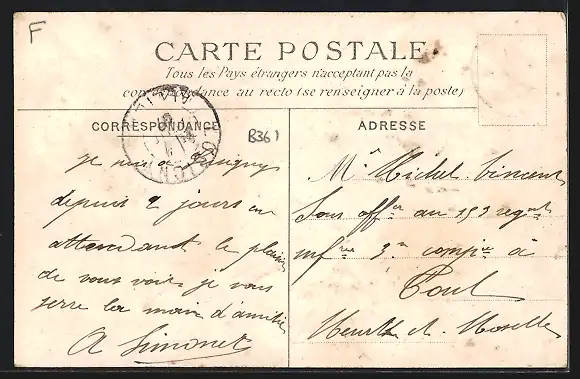 F
CARTE POSTALE
Tous les Pays étrangers n'acceptant pas la
correspondance au recto (se renseigner à la poste)
CORRESPONDANCE
B361
ADRESSE
je suis à
depuis 2 jours en
attendant le plaisir
de vous voir je vous
serre la main d'amitié
A Simonet
Mr Michel Vincent
Sous offer au 153 regnt
infrie 3e compie à
Toul
Meurthe et Moselle